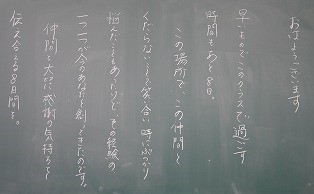 おはようございます
早いもので このクラスで過ごす
時間もあと8日。
この場所で、この仲間と
くだらないことで笑い合い 時にぶつかり
悩んだこともあったけど、その経験の
一つ一つが今のあなたを創ってきたのです。
仲間を大切に 感謝の気持ちを
伝え合える8日間を。